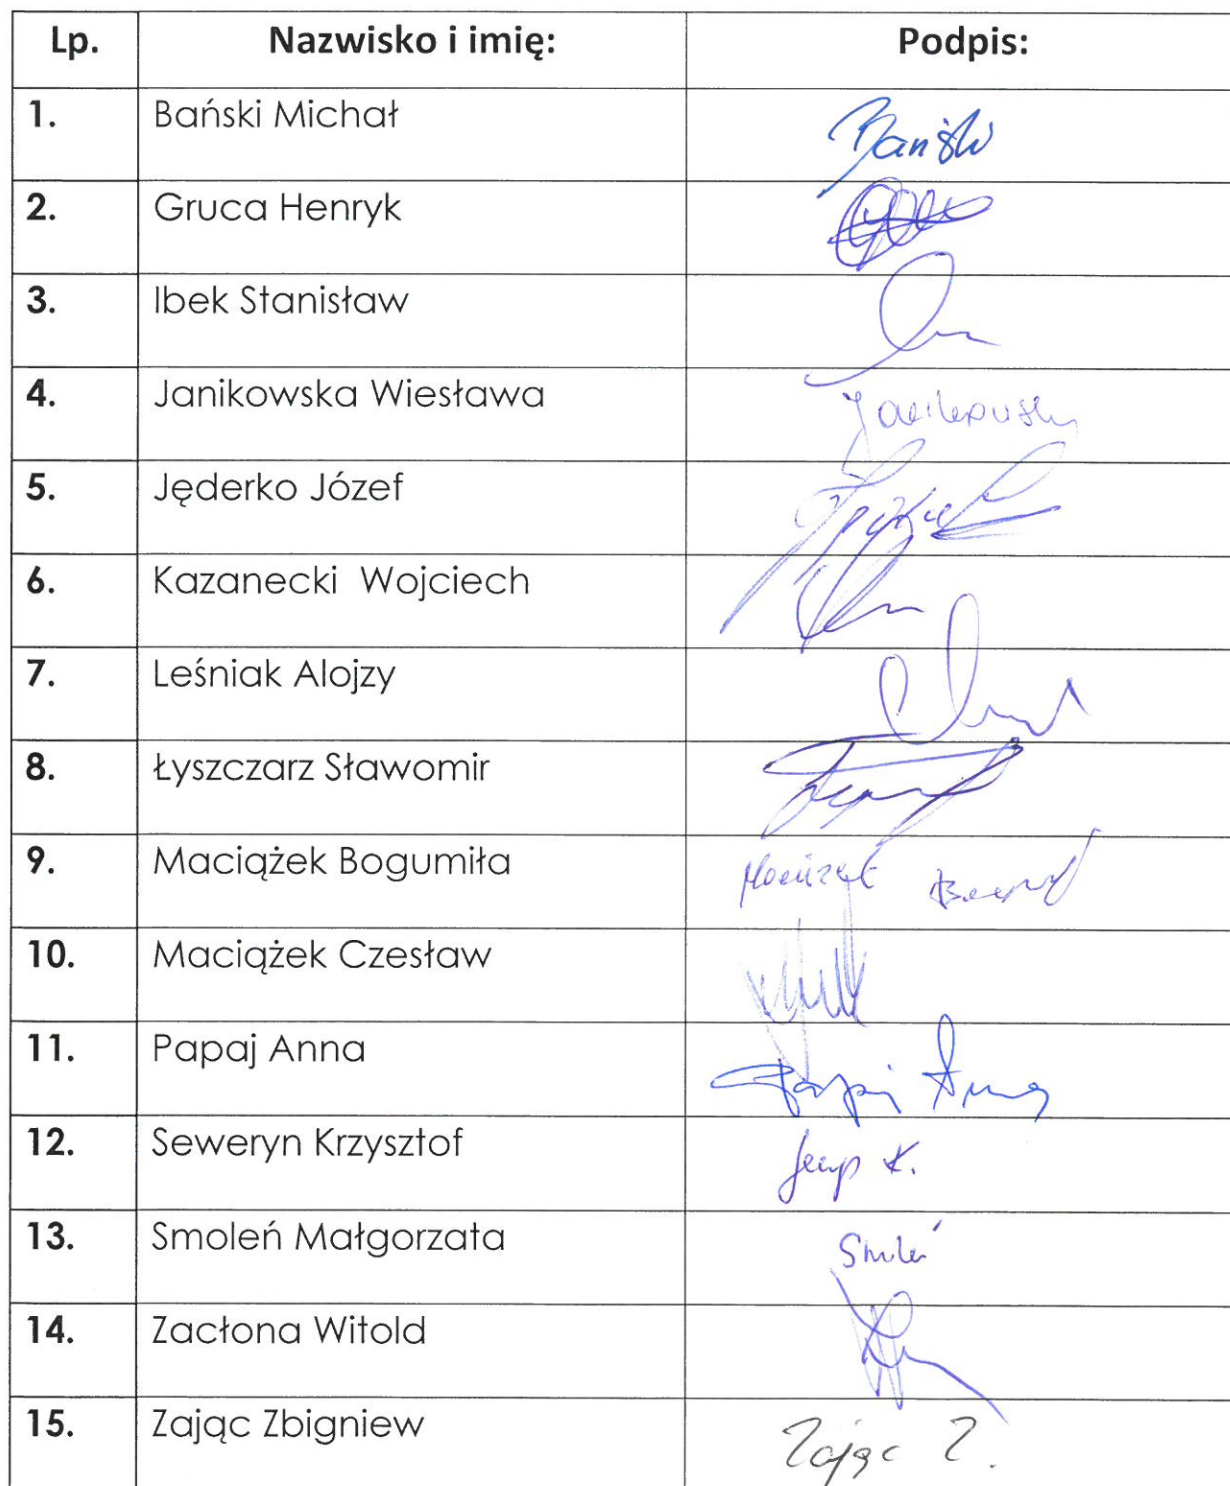 Lp. Nazwisko i imię: Podpis:
1. Bański Michał Bański
2. Gruca Henryk
3. Ibek Stanisław
4. Janikowska Wiesława
5. Jęderko Józef
6. Kazanecki Wojciech
7. Leśniak Alojzy
8. Łyszczarz Sławomir
9. Maciążek Bogumiła
10. Maciążek Czesław
11. Papaj Anna Papaj Anna
12. Seweryn Krzysztof
13. Smoleń Małgorzata Smoleń
14. Zacłona Witold
15. Zając Zbigniew Zając Z.